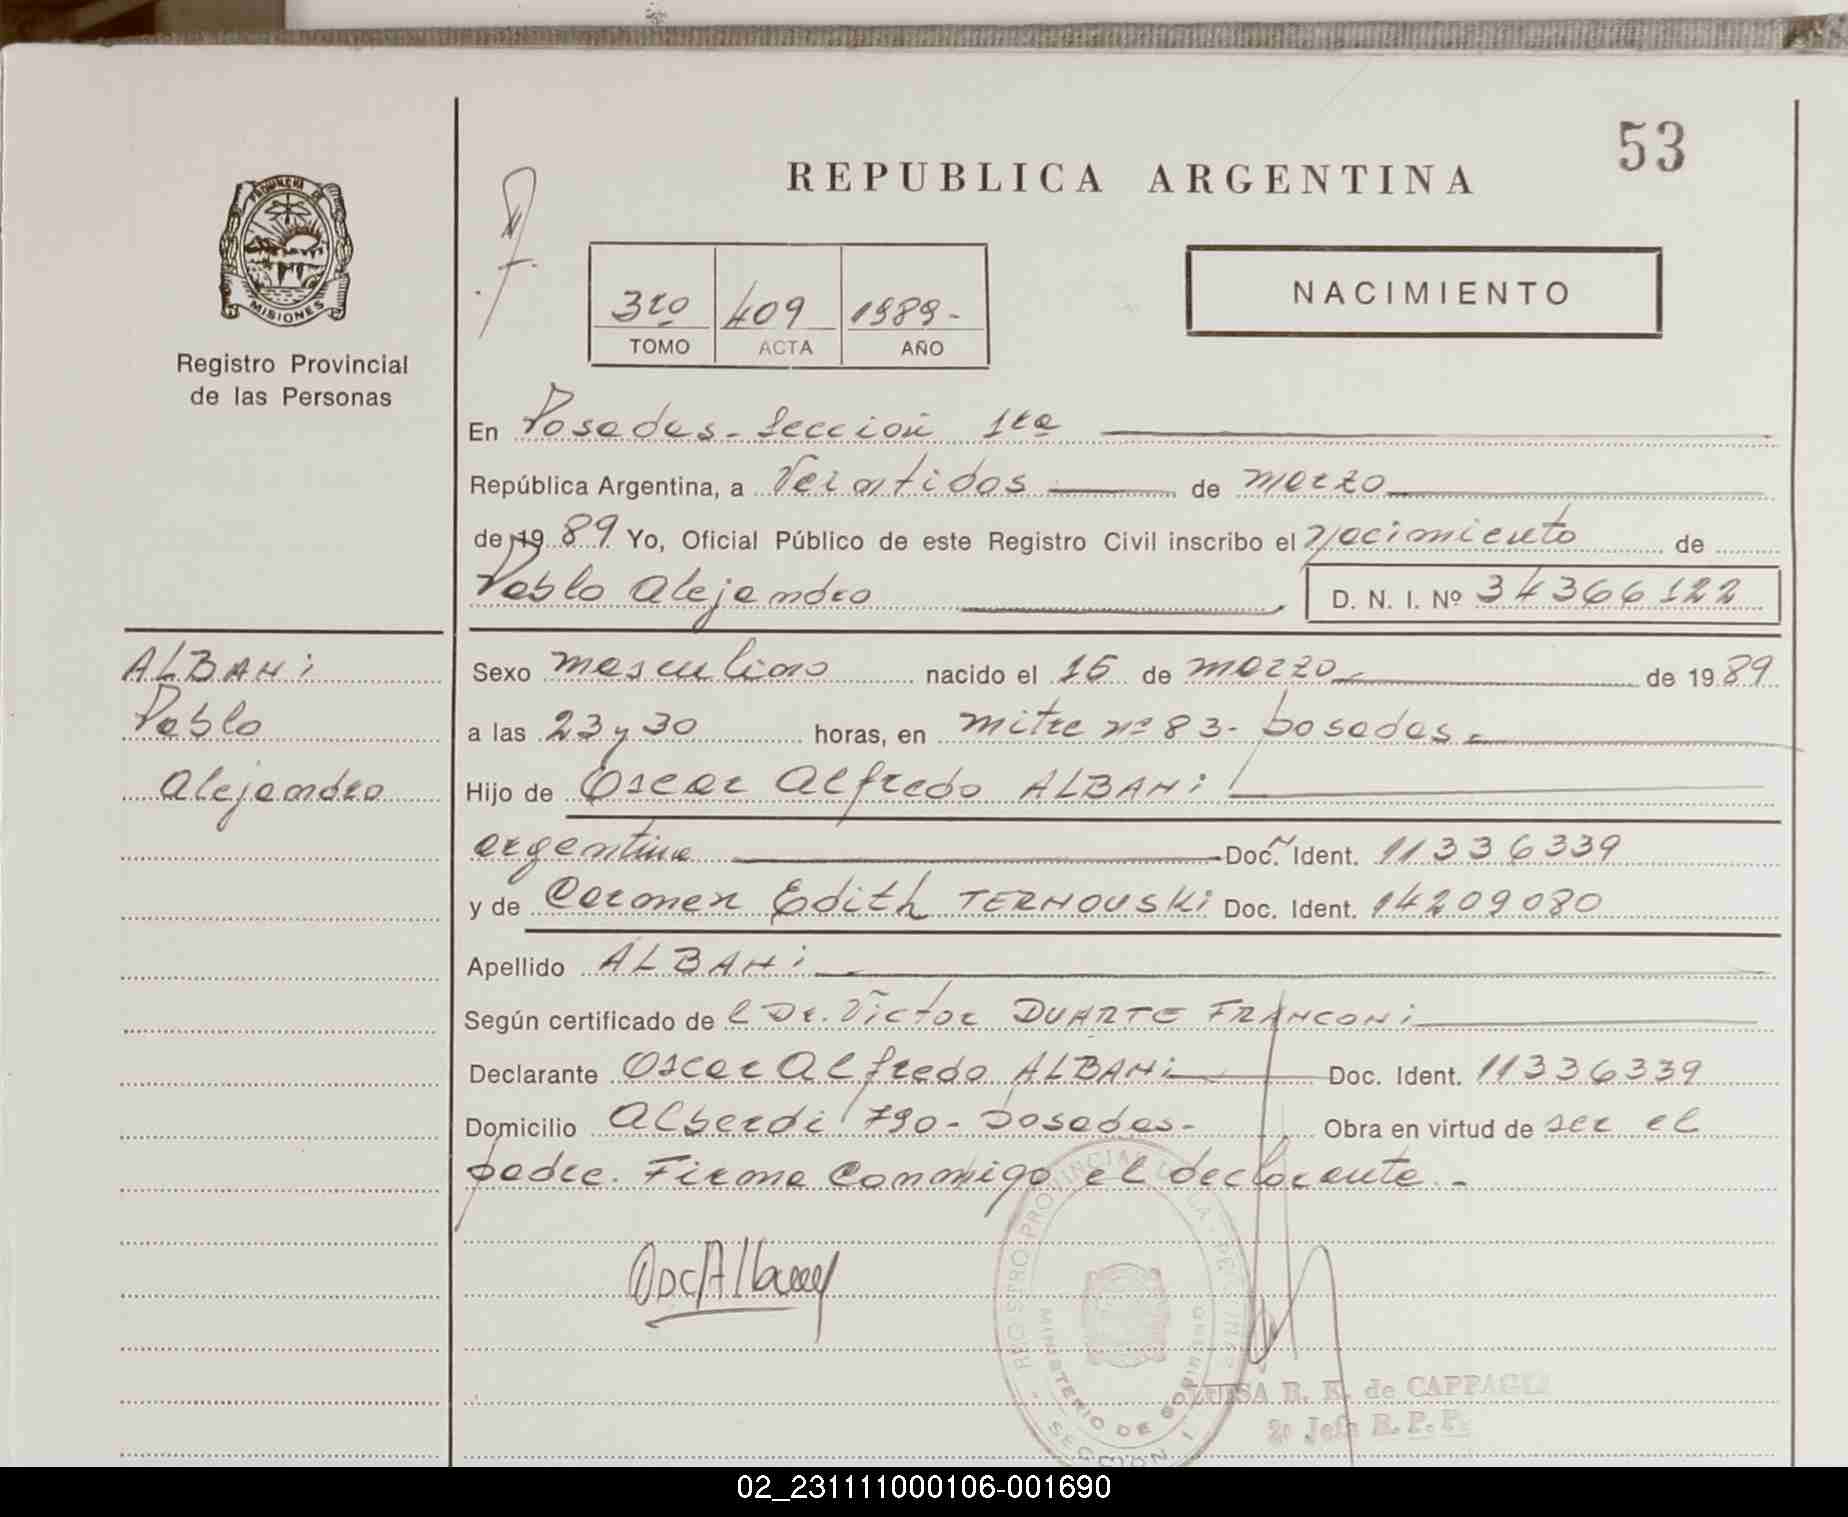 53
REPUBLICA ARGENTINA
PROVINCIA DE
MISIONES
Registro Provincial
de las Personas
3ro 409 1989-
TOMO ACTA AÑO
NACIMIENTO
En Posadas - Sección 1ra
República Argentina, a Veintidos de marzo
de 1989 Yo, Oficial Público de este Registro Civil inscribo el nacimiento de
Pablo Alejandro D. N. I. Nº 34366122
ALBANi
Pablo
Alejandro
Sexo masculino nacido el 15 de marzo de 1989
a las 23 y 30 horas, en mitre nº 83 - posadas.
Hijo de Oscar Alfredo ALBANi
argentina Doc. Ident. 11336339
y de Carmen Edith TERNOUSKi Doc. Ident. 14209080
Apellido ALBANi
Según certificado de l Dr. Victor DUARTE FRANCONi
Declarante Oscar Alfredo ALBANi Doc. Ident. 11336339
Domicilio Alberdi 790 - posadas - Obra en virtud de ser el
padre. Firma Conmigo el declarante.-
REGISTRO PROVINCIAL DE LAS PERSONAS
MINISTERIO DE GOBIERNO
SECCION 1
LUISA R. K. de
2º Jefe R. P. P.
02_231111000106-001690